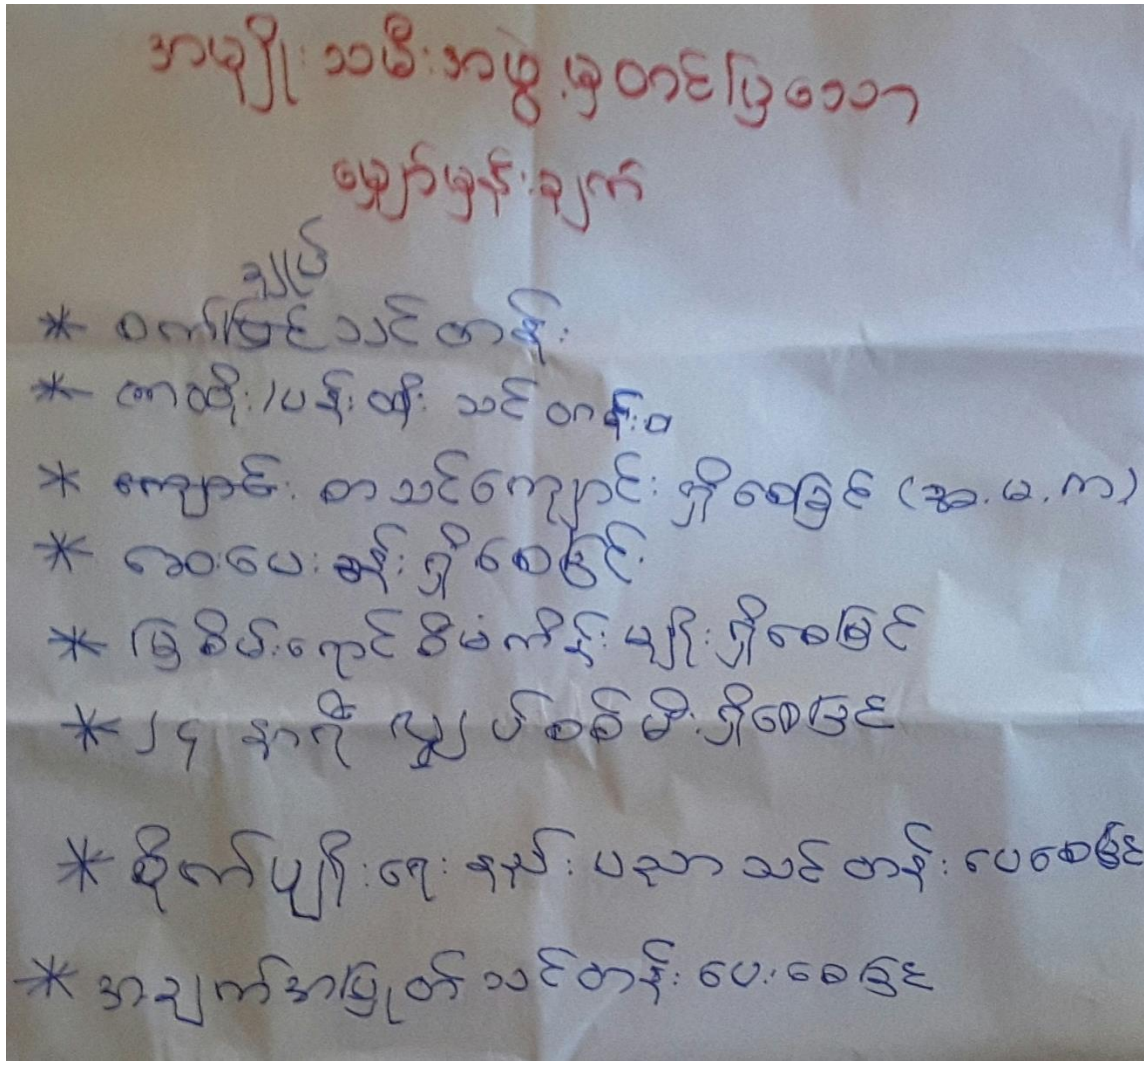 အမျိုးသမီးအဖွဲ့မှတင်ပြသော
မျှော်မှန်းချက်
ချုပ်
* စက်မြင့်သင်တန်း
* ဇာထိုး/ပန်းထိုး သင်တန်း။
* ကျောင်း စာသင်ကျောင်း ရှိစေခြင် (အ.မ.က)
* ဆေးပေးခန်းရှိစေခြင်း
* မြစိမ်းရောင်စိမံကိန်းမျိုးရှိစေခြင်
* ၂၄ နာရီ လျှပ်စစ်မီးရှိစေခြင်
* စိုက်ပျိုးရေးနည်းပညာသင်တန်းပေစေခြင်
* အချက်အပြုတ်သင်တန်းပေးစေခြင်